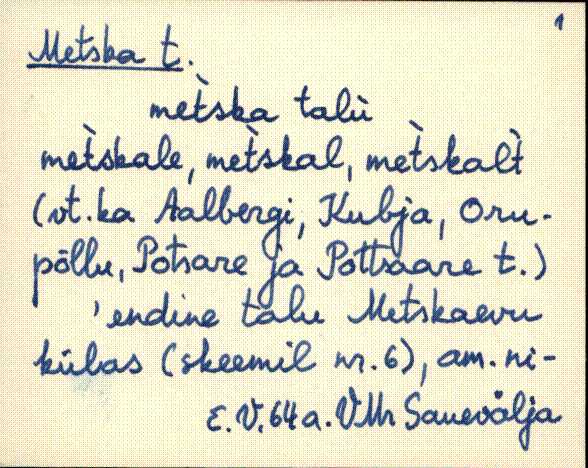 1
Metska t.
met̀ska talù
met̀skale, met̀skal, met̀skalt̀
(vt. ka Aalbergi, Kubja, Oru-
põllu, Potsare ja Pottsaare t.)
'endine talu Metskaevu
külas (skeemil nr. 6), am. ni-
E. V. 64 a. VMr Sauevälja